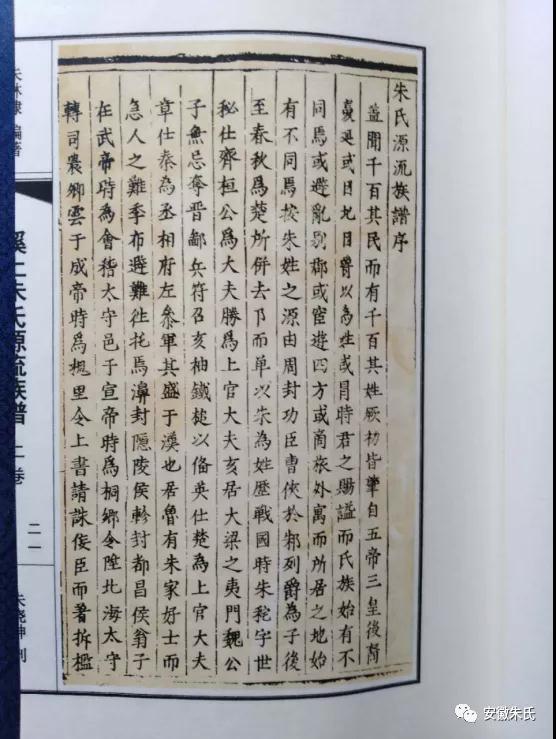 朱氏源流族譜序
蓋聞千百其民而有千百其姓厥初皆肇自五帝三皇後裔
蔓延或曰九曰爵以為姓或冐時君之賜謚而氏族始有不
同焉或避亂别郡或宦遊四方或商旅外寓而所居之地始
有不同焉按朱姓之源由周封功臣曹俠於邾列爵為子後
至春秋爲楚所併去阝而单以朱為姓歷戰國時朱秺字世
秘仕齊桓公爲大夫勝爲上官大夫亥居大梁之夷門魏公
子無忌奪晋鄙兵符召亥袖鐵槌以俻英仕楚為上官大夫
章仕秦為丞相府左叅軍其盛于漢也居魯有朱家好士而
急人之難季布避難徃托焉濞封隠陵侯軫封都昌侯翁子
在武帝時為會稽太守邑子宣帝時爲桐鄉令陞北海太守
轉司農卿雲于成帝時爲槐里令上書請誅侫臣而著拆檻
朱林隸 編著
溪上朱氏源流族譜 上卷
二一
安徽朱氏